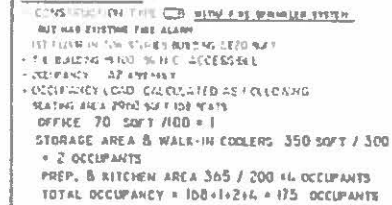 - CONSTRUCTION TYPE WITH FIRE SPRINKLER SYSTEM
BUT HAS EXISTING FIRE ALARM
- OCCUPANCY A2 ASSEMBLY
- OCCUPANCY LOAD CALCULATED AS FOLLOWING
SEATING AREA 2960 SQFT 168 SEATS
OFFICE 70 SQFT /100 = 1
STORAGE AREA & WALK-IN COOLERS 350 SQFT / 300
= 2 OCCUPANTS
PREP. & KITCHEN AREA 365 / 200 =4 OCCUPANTS
TOTAL OCCUPANCY = 168+1+2+4 = 175 OCCUPANTS